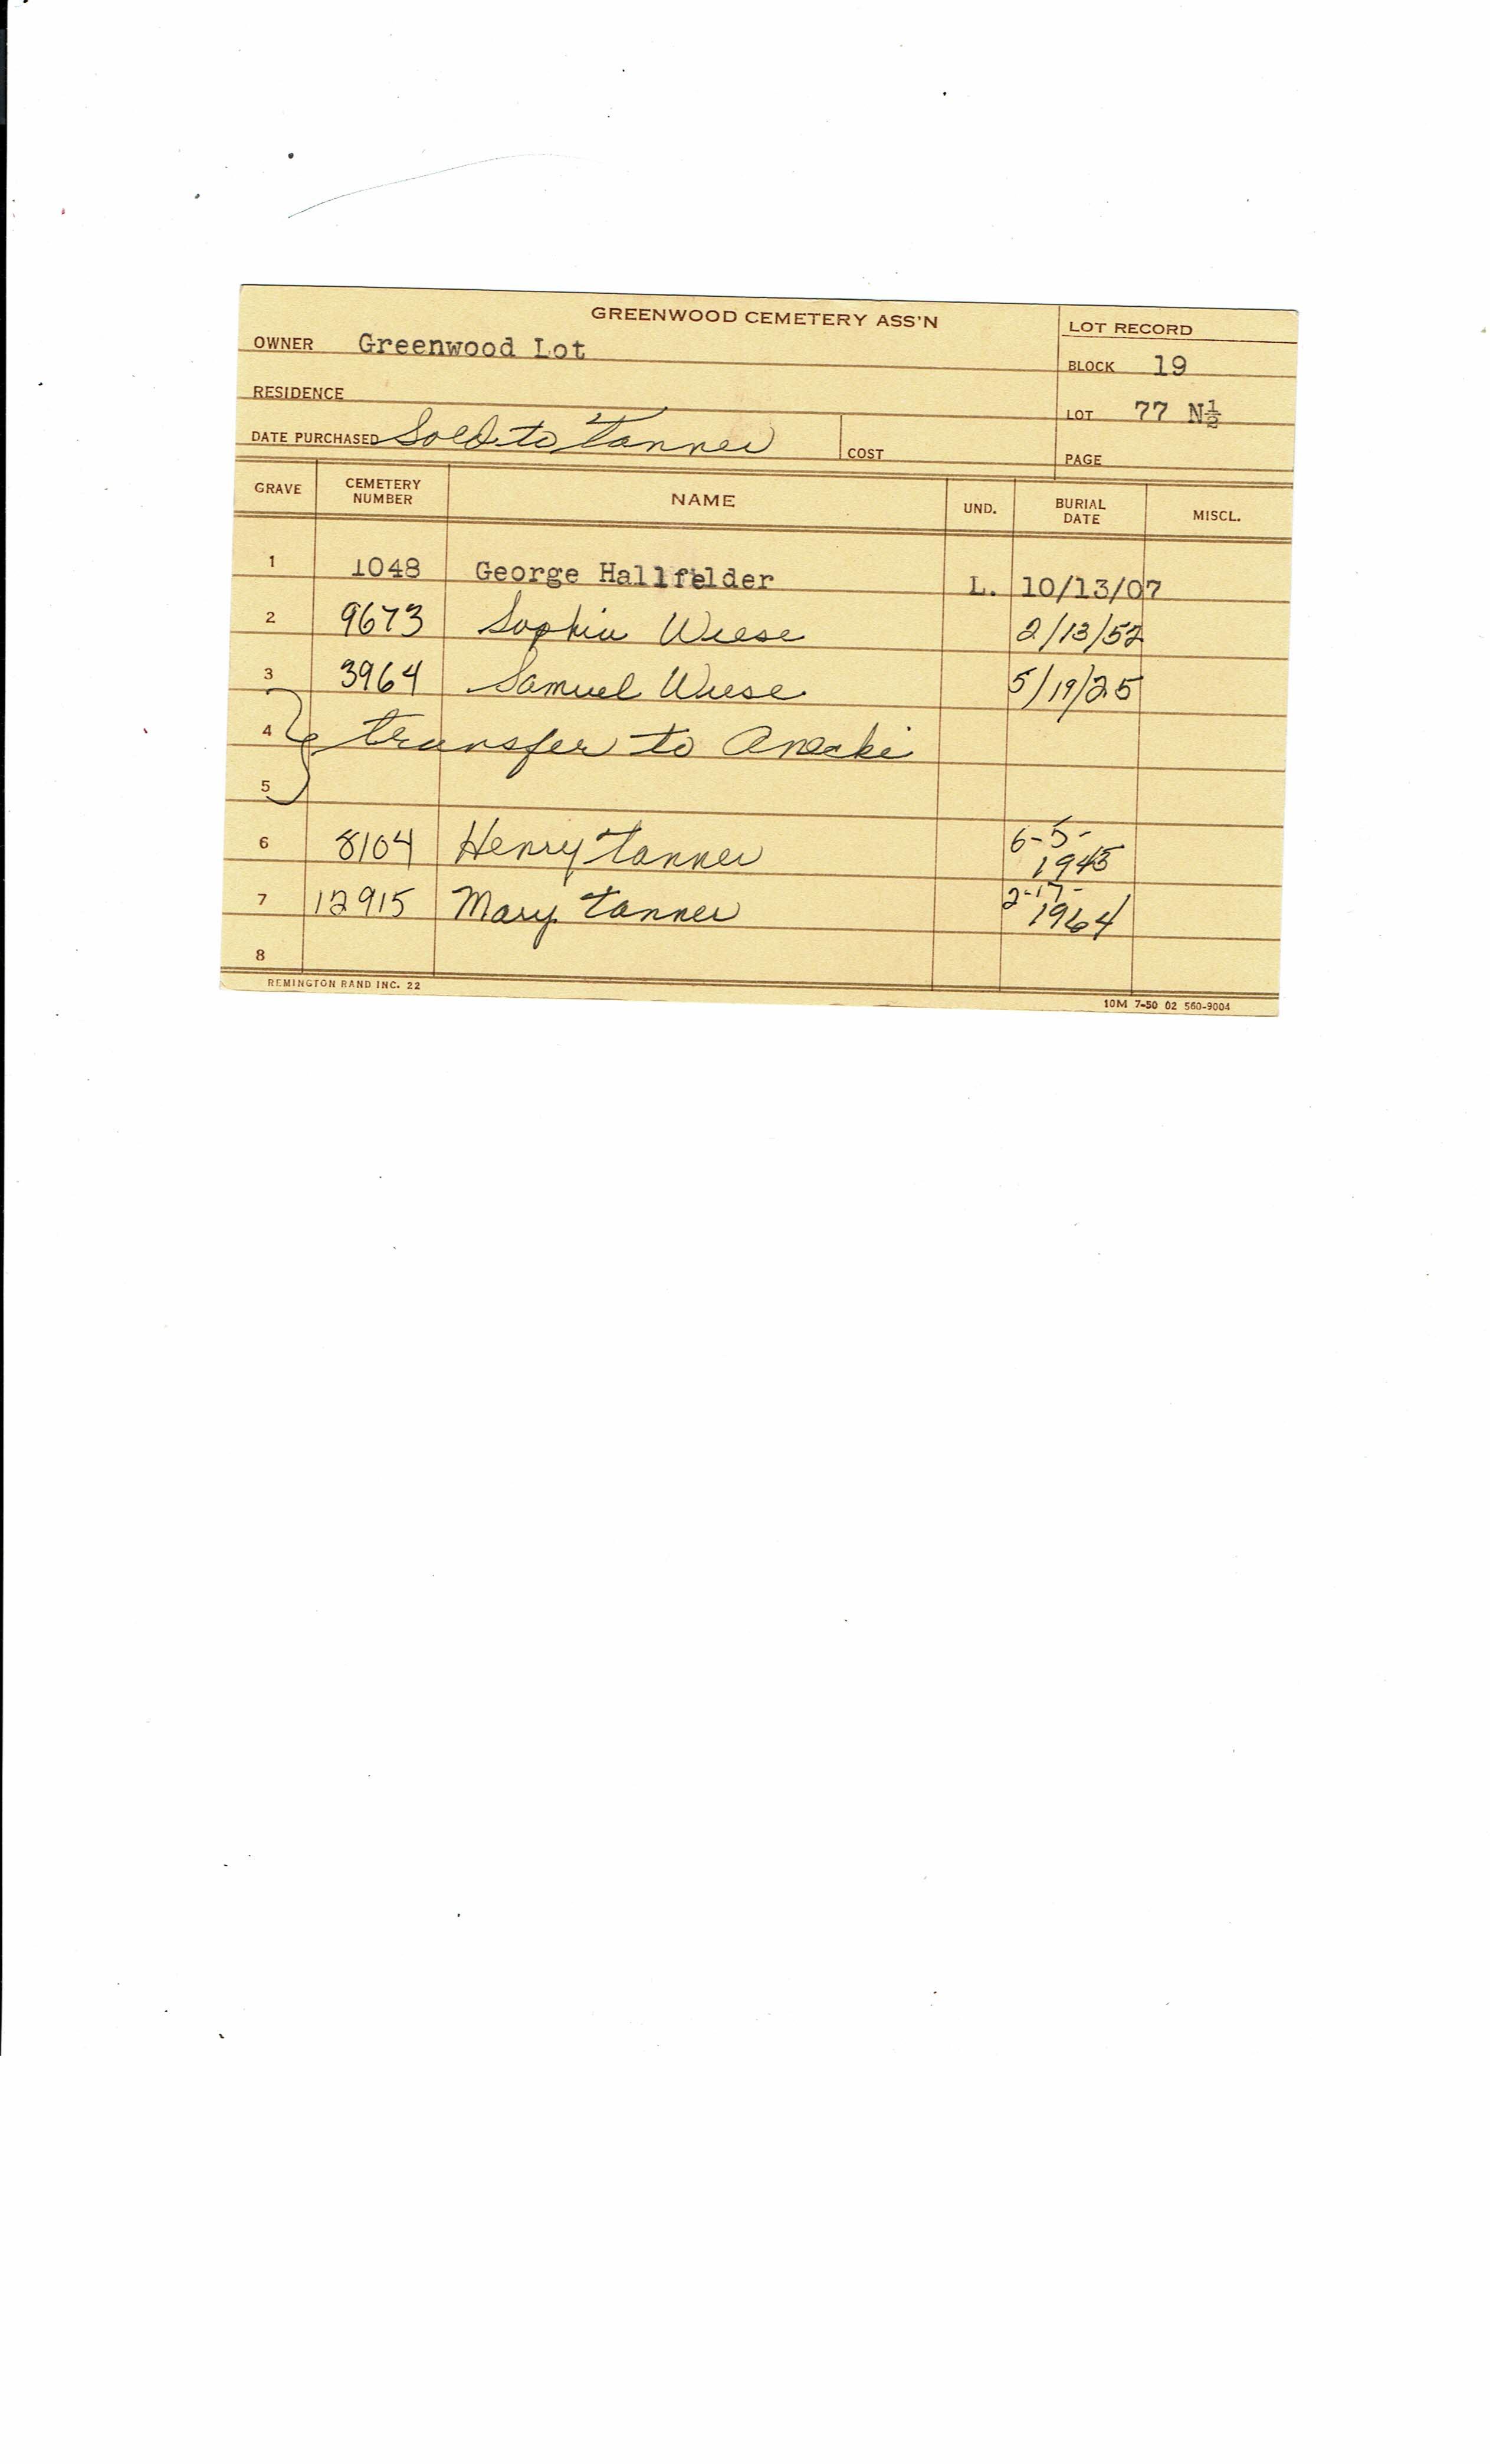 GREENWOOD CEMETERY ASS'N
LOT RECORD
OWNER Greenwood Lot
BLOCK 19
RESIDENCE
LOT 77 N½
DATE PURCHASED Sold to Tanner COST
PAGE
GRAVE CEMETERY NUMBER NAME UND. BURIAL DATE MISCL.
1 1048 George Hallfelder L. 10/13/07
2 9673 Sophia Wiese 2/13/52
3 3964 Samuel Wiese 5/19/25
4 transfer to
5
6 8104 Henry Tanner 6-5-1945
7 12915 Mary Tanner 2-17-1964
8
REMINGTON RAND INC. 22
10M 7-50 02 560-9004